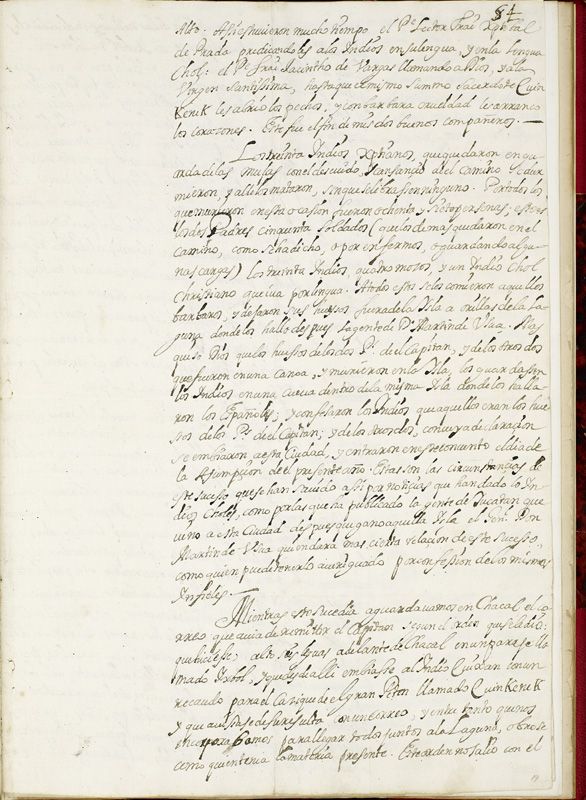 84
Alto. Assi estuvieron mucho tiempo el Pe. Lector Frai Xptobal
de Prada predicandoles a los Indios en su lengua, y en la lengua
Chol: el Pe. Frai Jacintho de Vargas llamando a Dios, y a la
Virgen Santissima, hasta que el mismo summo sacerdote Cuin
Kenek les abrio los pechos, y con barbara crueldad les arranco
los corazones. Este fue el fin de mis dos buenos compañeros.
Los treinta Indios Xptianos, que quedaron en gu-
arda de las mulas con el descuido, y cansancio del camino se dur
mieron, y alli los mataron, sin que se librasse ninguno. Por todos los
que murieron en esta ocasion fueron ochenta y siete personas; estos
los dos Padres cinquenta soldados (que los demas quedaron en el
camino, como se ha dicho, o por enfermos, o guardando algu-
nas cargas) los treinta Indios, quatro mozos, y un Indio Chol
Christiano que iva por lengua. A todos estos se los comieron aquellos
barbaros, y dejaron sus huesos fuera de la Isla a orillas de la La-
guna donde los hallo despues la gente de Dn. Martin de Ursua. Mas
quiso Dios que los huessos de los dos Ps. de el Capitan, y de los otros dos
que fueron en una canoa, y murieron en la Isla, los guardassen
los Indios en una cueva dentro de la misma Isla donde los halla-
ron los Españoles; y confesaron los Indios que aquellos eran los hue-
ssos de los Ps. de el Capitan; y de los otros dos, con cuya declaracion
se embiaron a esta Ciudad, y entraron en este convento el dia de
la Assumpcion de el presente año. Estas son las circunstancias de
este sucesso que se han savido assi por noticias que han dado los In-
dios Choles, como por las que ha publicado la gente de Yucatan que
vino a esta Ciudad despues que gano aquella Isla el Señ. Don
Martin de Ursua quien dará mas cierta relacion de este sucesso,
como quien puede tenerlo averiguado por confession de los mismos
Infieles.
Mientras esto sucedia aguardavamos en Chacal el co-
rreo que avia de remitir el Capitan segun el orden que se le dio;
que hiciesse alto seis leguas adelante de Chacal en un parage lla-
mado Ixbol, y que desde alli embiasse al Indio Cuixan con un
recaudo para el Cazique de el gran Peten llamado Cuin Kenek
y que avisasse de su resulta con un correo y entre tanto que nos
incorporabamos para llegar todos juntos a la Laguna, obrasse
como quien tenia la materia presente. Este orden no salio con el